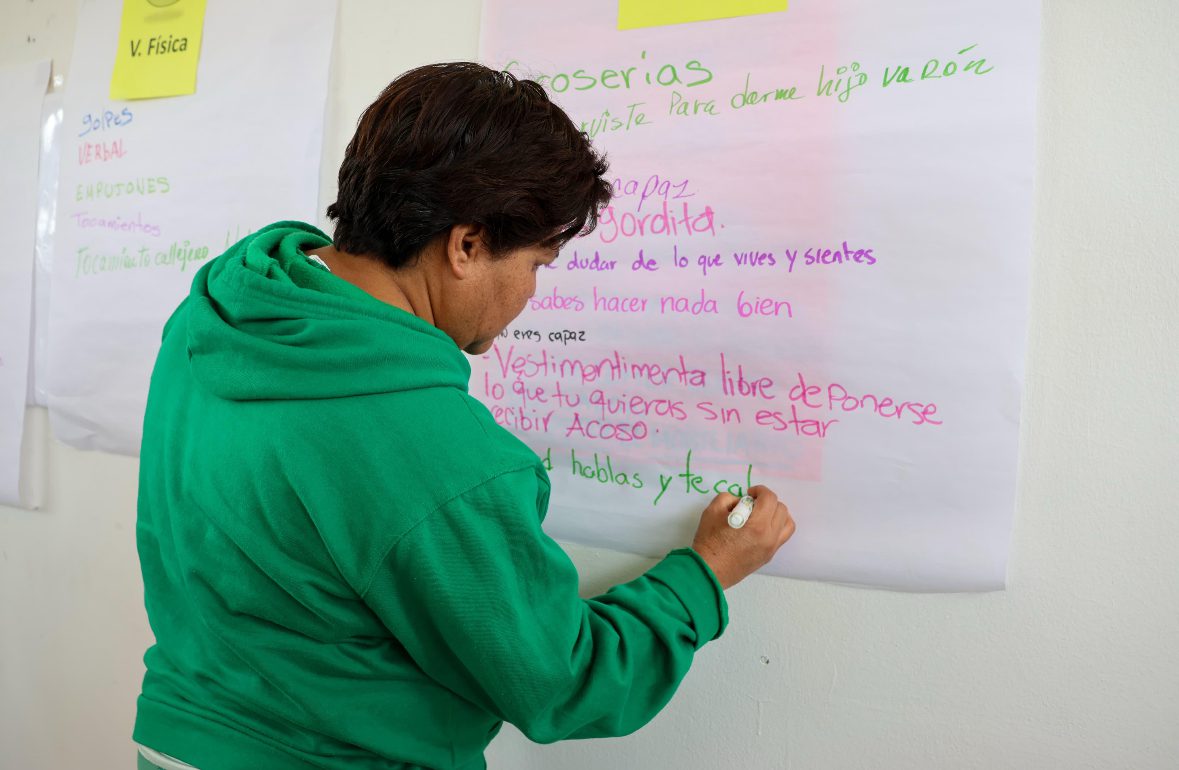 V. Física
golpes
VERBAL
EMPUJONES
Tocamientos
Tocamiento callejero
Groserias
Para darme hijo vaRón
capaz
gordita.
dudar de lo que vives y sientes
sabes hacer nada bien
eres capaz
-Vestimentimenta libre de Ponerse
lo que tu quieras sin estar
recibir Acoso.
hablas y te cal